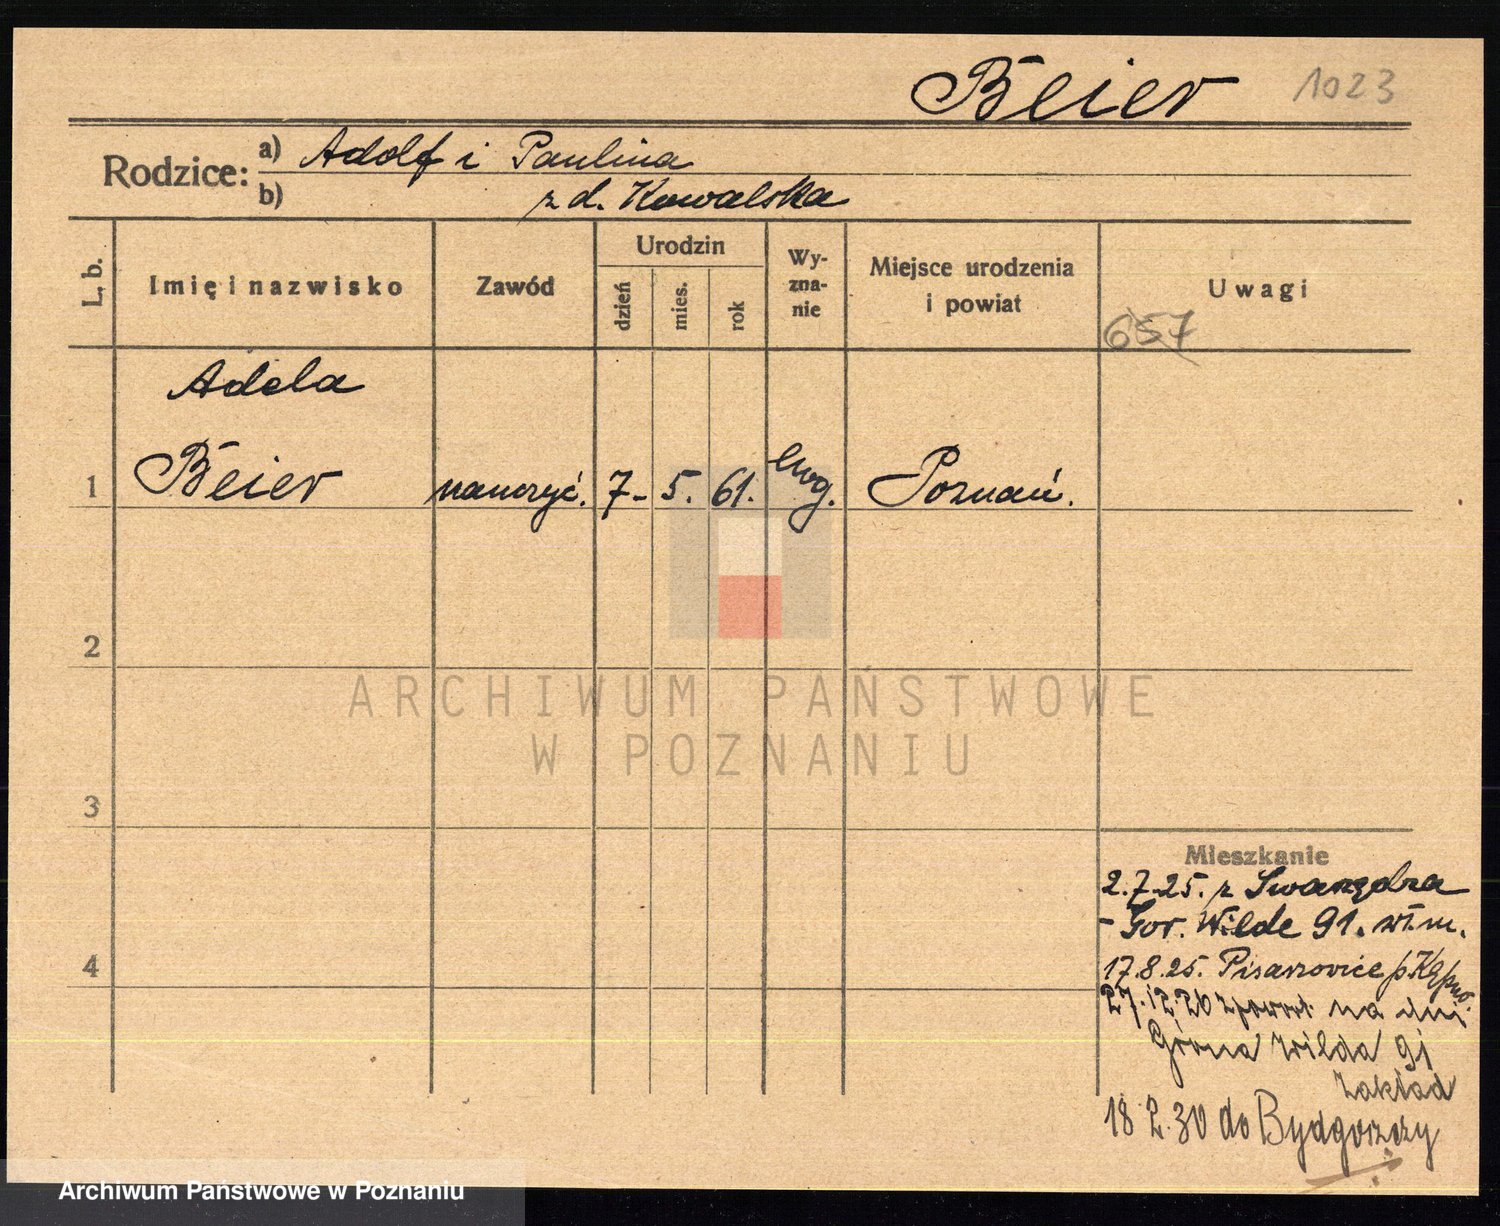 Beier 1023
Rodzice: a) Adolf i Paulina
b) z d. Kowalska
L. b. Imię i nazwisko Zawód Urodzin dzień mies. rok Wy-zna-nie Miejsce urodzenia i powiat Uwagi
657
Adela
1 Beier nauczyć. 7- 5. 61. ewg. Poznań.
2
ARCHIWUM PAŃSTWOWE
W POZNANIU
3
Mieszkanie
2.7.25. z Swarzędza
- Gor. Wilde 91. wł. m.
4
17.8.25. Pisarzovice p. Kępno.
27.12.26 zpowrt. na dni
Górna Wilda 91
zakład
18 2.30 do Bydgoszczy
Archiwum Państwowe w Poznaniu